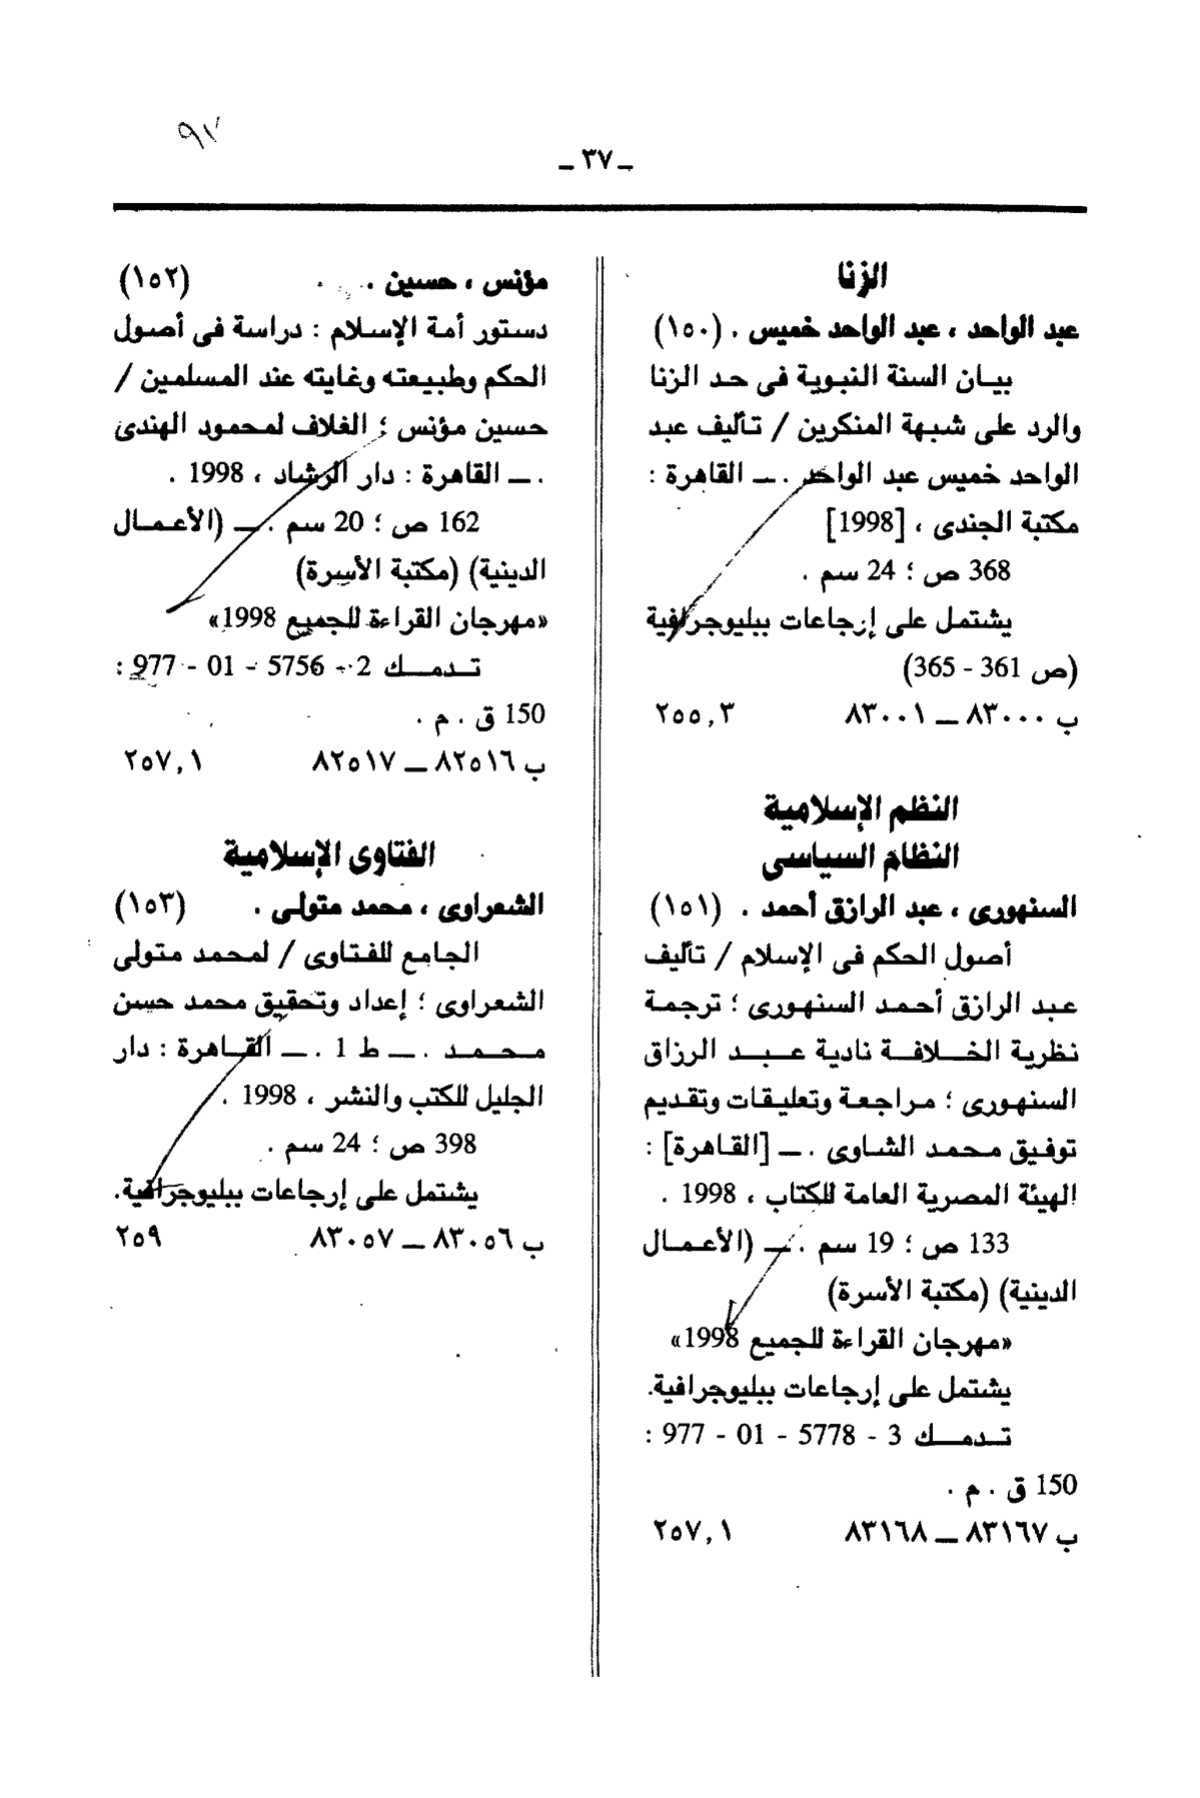 ـ ٣٧ ـ
الزنا
عبد الواحد ، عبد الواحد خميس . (١٥٠)
بيان السنة النبوية فى حد الزنا
والرد على شبهة المنكرين / تأليف عبد
الواحد خميس عبد الواحد . ـ القاهرة :
مكتبة الجندى ، [1998]
368 ص ؛ 24 سم .
يشتمل على إرجاعات ببليوجرافية
(ص 361 - 365)
ب ٨٣٠٠٠ ـ ٨٣٠٠١ ٢٥٥,٣
النظم الإسلامية
النظام السياسى
السنهورى ، عبد الرازق أحمد . (١٥١)
أصول الحكم فى الإسلام / تأليف
عبد الرازق أحمد السنهورى ؛ ترجمة
نظرية الخلافة نادية عبد الرزاق
السنهورى ؛ مراجعة وتعليقات وتقديم
توفيق محمد الشاوى . ـ [القاهرة] :
الهيئة المصرية العامة للكتاب ، 1998 .
133 ص ؛ 19 سم . ـ (الأعمال
الدينية) (مكتبة الأسرة)
«مهرجان القراءة للجميع 1998»
يشتمل على إرجاعات ببليوجرافية.
تدمك 3 - 5778 - 01 - 977 :
150 ق . م .
ب ٨٣١٦٧ ـ ٨٣١٦٨ ٢٥٧,١
مؤنس ، حسين . (١٥٢)
دستور أمة الإسلام : دراسة فى أصول
الحكم وطبيعته وغايته عند المسلمين /
حسين مؤنس ؛ الغلاف لمحمود الهندى
. ـ القاهرة : دار الرشاد ، 1998 .
162 ص ؛ 20 سم . ـ (الأعمال
الدينية) (مكتبة الأسرة)
«مهرجان القراءة للجميع 1998»
تدمك 2 - 5756 - 01 - 977 :
150 ق . م .
ب ٨٢٥١٦ ـ ٨٢٥١٧ ٢٥٧,١
الفتاوى الإسلامية
الشعراوى ، محمد متولى . (١٥٣)
الجامع للفتاوى / لمحمد متولى
الشعراوى ؛ إعداد وتحقيق محمد حسن
محمد . ـ ط 1 . ـ القاهرة : دار
الجليل للكتب والنشر ، 1998 .
398 ص ؛ 24 سم .
يشتمل على إرجاعات ببليوجرافية.
ب ٨٣٠٥٦ ـ ٨٣٠٥٧ ٢٥٩